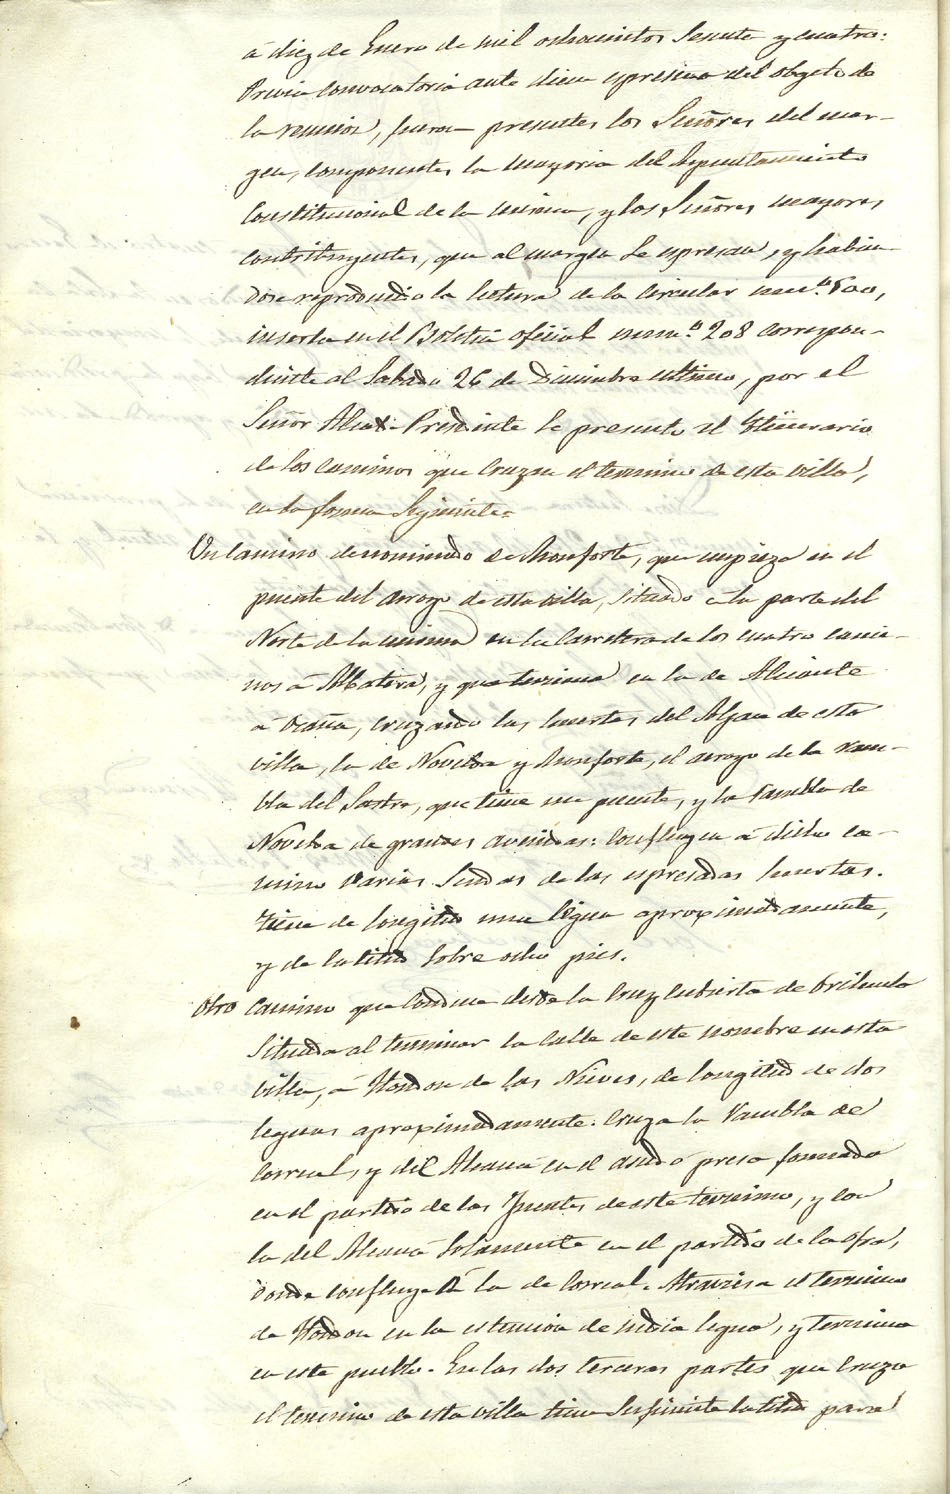 á diez de Enero de mil ochocientos Sesenta y cuatro:
Previa convocatoria ante diem espresiva del objeto de
la reunion, fueron presentes los Señores del mar-
gen, componentes la mayoria del Ayuntamiento
Constitucional de la misma, y los Señores mayores
contribuyentes, que al margen se espresan, y habien-
dose reproducido la lectura de la Circular num.º 500,
inserta en el Boletin oficial num.º 208 correspon-
diente al Sabado 26 de Diciembre ultimo, por el
Señor Alcal. Presidente se presentó el Ytinerario
de los caminos que cruzan el termino de esta villa,
en la forma Siguiente=
Un camino denominado de Monforte, que empieza en el
puente del arroyo de esta villa, Situado á la parte del
Norte de la misma en la Carretera de los cuatro cami-
nos á Albatera, y que termina en la de Alicante
á Ocaña, cruzando las huertas del Aljau de esta
villa, la de Novelda y Monforte, el arroyo de la ram-
bla del Sastre, que tiene un puente, y la Rambla de
Novelda de grandes avenidas: Confluyen á dicho ca-
mino varias Sendas de las espresadas huertas.
Tiene de longitud una legua aproximadamente,
y de latitud sobre ocho pies.
Otro Camino que conduce desde la Cruz Cubierta de Orihuela
Situada al terminar la Calle de este nombre en esta
villa, á Hondon de las Nieves, de longitud de dos
leguas aproximadamente: Cruza la Rambla del
Correal, y del Alcaná en el azud ó presa formada
en el partido de las Fuentes de este termino, y con
la del Alcaná Solamente en el partido de la Ofra,
donde confluye á la de Correal. Atraviesa el termino
de Hondon en la estencion de media legua, y termina
en este pueblo. En las dos terceras partes que cruza
el termino de esta villa tiene Suficiente latitud para